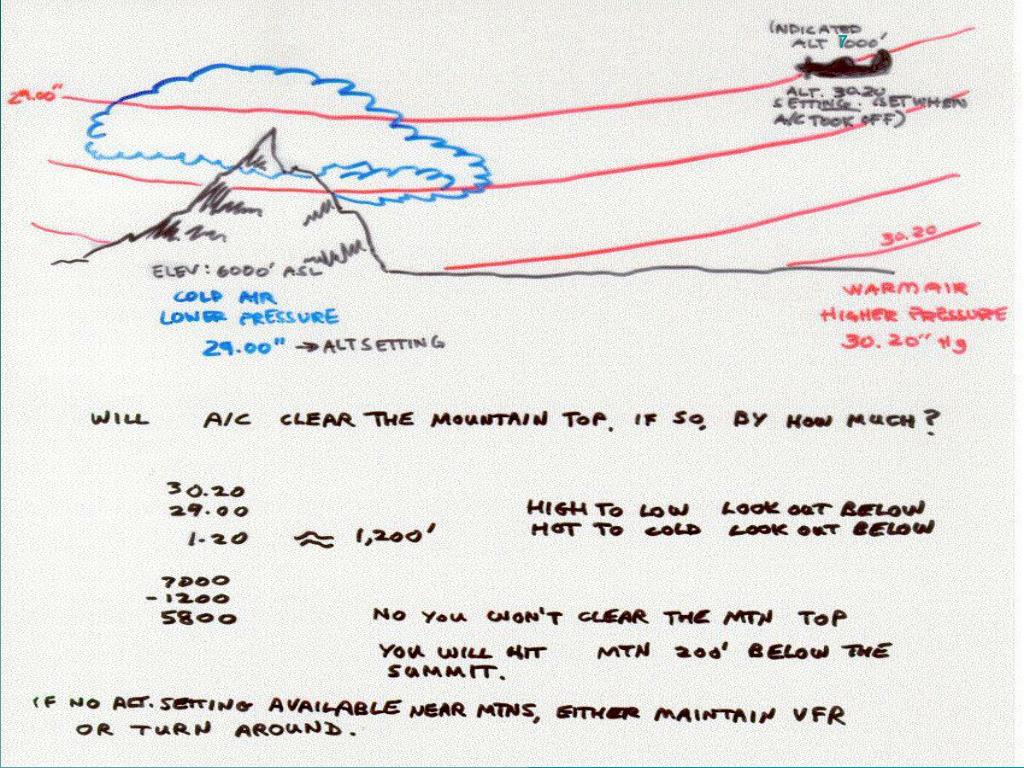 INDICATED
ALT 7000'
29.00"
ALT. 30.20
SETTING. (SET WHEN
A/C TOOK OFF)
30.20
ELEV: 6000' ASL
COLD AIR
LOWER PRESSURE
29.00" → ALT SETTING
WARM AIR
HIGHER PRESSURE
30.20" Hg
WILL A/C CLEAR THE MOUNTAIN TOP. IF SO, BY HOW MUCH?
30.20
29.00
1.20 ≈ 1,200'
HIGH TO LOW LOOK OUT BELOW
HOT TO COLD LOOK OUT BELOW
7000
-1200
5800
NO YOU WON'T CLEAR THE MTN TOP
YOU WILL HIT MTN 200' BELOW THE
SUMMIT.
IF NO ALT. SETTING AVAILABLE NEAR MTNS, EITHER MAINTAIN VFR
OR TURN AROUND.